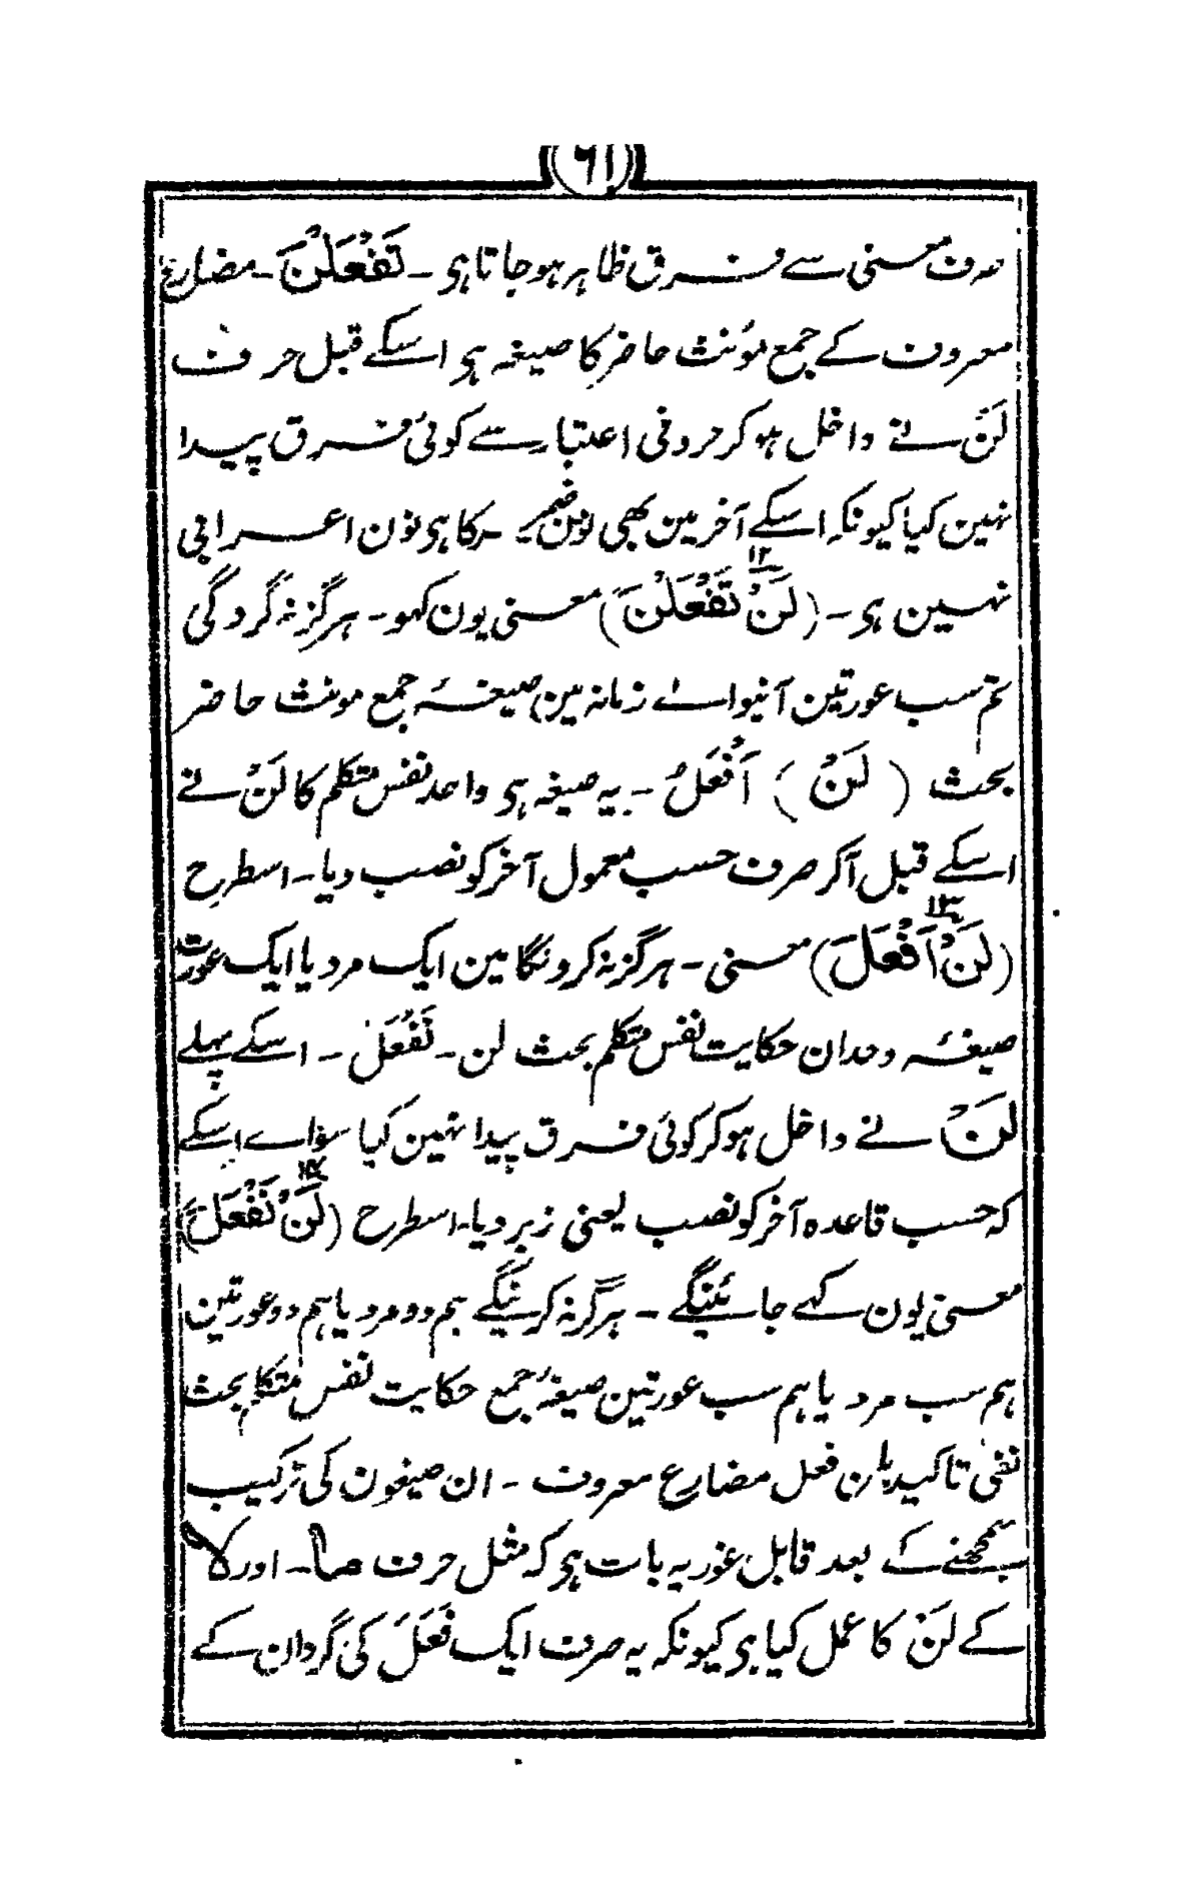 ۶۱
صرف معنی سے فرق ظاہر ہوجاتا ہی ـ تَفْعَلْنَ ـ مضارع
معروف کے جمع مؤنث حاضر کا صیغہ ہی اسکے قبل حرف
لَنْ نے داخل ہو کر حروفی اعتبار سے کوئی فرق پیدا
نہین کیا کیونکہ اسکے آخر مین بھی نون ضمیر کا ہی نون اعرابی
نہین ہی ـ (لَنْ تَفْعَلْنَ) ۱۲ معنی یون کہو ـ ہرگز نہ کروگی
تم سب عورتین آنیوالے زمانہ مین صیغۂ جمع مونث حاضر
بحث (لَنْ) اَفْعَلُ ـ یہ صیغہ ہی واحد نفس متکلم کا لَنْ نے
اسکے قبل آکر صرف حسب معمول آخر کو نصب دیا ـ اسطرح
(لَنْ اَفْعَلَ) ۱۳ معنی ـ ہرگز نہ کرونگا مین ایک مرد یا ایک عورت
صیغۂ وحدان حکایت نفس متکلم بحث لن ـ نَفْعَلُ ـ اسکے پہلے
لَنْ نے داخل ہوکر کوئی فرق پیدا نہین کیا سواے اسکے
کہ حسب قاعدہ آخر کو نصب یعنی زبر دیا ـ اسطرح (لَنْ نَفْعَلَ) ۱۴
معنی یون کہے جائینگے ـ ہرگز نہ کرینگے ہم دو مرد یا ہم دو عورتین
ہم سب مرد یا ہم سب عورتین صیغۂ جمع حکایت نفس متکلم بحث
نفی تاکید بلن فعل مضارع معروف ـ ان صیغون کی ترکیب
سمجھنے کے بعد قابل غور یہ بات ہی کہ مثل حرف ما ـ اور لا
کے لَنْ کا عمل کیا ہی کیونکہ یہ صرف ایک فَعَلَ کی گردان کے